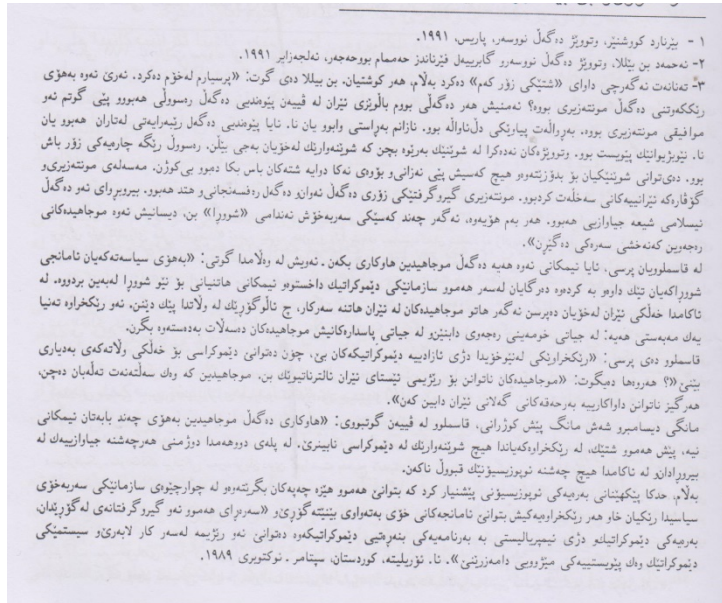 ١ - بێرنارد کووشنێر، وتووێژ دەگەڵ نووسەر، پاریس، ١٩٩١.
٢- ئەحمەد بن بێللا، وتووێژ دەگەڵ نووسەرو گابرییەل فێرناندز حەممام بووحەجەر، ئەلجەزایر ١٩٩١.
٣- تەنانەت ئەگەرچی داوای «شتێکی زۆر کەم» دەکرد بەڵام، هەر کوشتیان. بن بیللا دەی گوت: «پرسیارم لەخۆم دەکرد. ئەرێ ئەوە بەهۆی
رێککەوتنی دەگەڵ مونتەزیری بووە؟ ئەمنیش هەر دەگەڵی بووم باڵوێزی ئێران لە ڤیێەن پێوەندیی دەگەڵ رەسووڵی هەبوو پێی گوتم ئەو
موافیقی مونتەزیری بووە. بەڕواڵەت پیاوێکی دڵناواڵە بوو. نازانم بەڕاستی وابوو یان نا. ئایا پێوەندیی دەگەڵ رێبەرایەتی لەتاران هەبوو یان
نا. نێوبژیوانێك پێویست بوو. وتووێژەکان نەدەکرا لە شوێنێك بەرێوە بچن کە شوێنەوارێك لەخۆیان بەجی بێڵن. رەسووڵ رێگە چارەیەکی زۆر باش
بوو. دەی‌توانی شوێنێکیان بۆ بدۆزێتەوەو هیچ کەسیش پێی نەزانی‌و بۆوەی نەکا دوایە شتەکان باس بکا دەبوو بی‌کوژن. مەسەلەی مونتەزیری‌و
گۆڤارەکە ئێرانییەکانی سەخڵەت کردبوو. مونتەزیری گیروگرفتێکی زۆری دەگەڵ ئەوان‌و دەگەڵ رەفسەنجانی‌و هتد هەبوو. بیروبڕوای ئەو دەگەڵ
ئیسلامی شیعە جیاوازیی هەبوو. هەر بەم هۆیەوە، ئەگەر چەند کەسێکی سەربەخۆش ئەندامی «شوورا» بن، دیسانیش ئەوە موجاهیدەکانی
رەجەوین کەنەخشی سەرەکی دەگێڕن».
لە قاسملوویان پرسی، ئایا ئیمکانی ئەوە هەیە دەگەڵ موجاهیدین هاوکاری بکەن. ئەویش لە وەڵامدا گوتی: «بەهۆی سیاسەتەکەیان ئامانجی
شووراکەیان تێك داوەو بە کردەوە دەرگایان لەسەر هەموو سازمانێکی دێموکراتیك داخستوەو ئیمکانی هاتنیانی بۆ نێو شوورا لەبەین بردووە. لە
ئاکامدا خەڵکی ئێران لەخۆیان دەپرسن ئەگەر هاتو موجاهیدەکان لە ئێران هاتنە سەرکار، چ ئاڵوگۆڕێك لە وڵاتدا پێك دێنن. ئەو رێکخراوە تەنیا
یەك مەبەستی هەیە: لە جیاتی خومەینی رەجەوی دابنێن‌و لە جیاتی پاسدارەکانیش موجاهیدەکان دەسەڵات بەدەستەوە بگرن.
قاسملوو دەی پرسی: «رێکخراوێکی لەنێوخۆیدا دژی ئازادییە دێموکراتیکەکان بێ، چۆن دەتوانێ دێموکراسی بۆ خەڵکی وڵاتەکەی بەدیاری
بێنێ»؟ هەروەها دەیگوت: «موجاهیدەکان ناتوانن بۆ رێژیمی ئێستای ئێران ئالترناتیوێك بن، موجاهیدین کە وەك سەڵتەنەت تەڵەبان دەچن،
هەرگیز ناتوانن داواکارییە بەرحەقەکانی گەلانی ئێران دابین کەن».
مانگی دیسامبرو شەش مانگ پێش کوژرانی، قاسملوو لە ڤیێەن گوتبووی: «هاوکاری دەگەڵ موجاهیدین بەهۆی چەند بابەتان ئیمکانی
نیە، پێش هەموو شتێك، لە رێکخراوەکەیاندا هیچ شوێنەوارێك لە دێموکراسی نابینرێ. لە پلەی دووهەمدا دوژمنی هەرچەشنە جیاوازییەك لە
بیروڕادان‌و لە ئاکامدا هیچ چەشنە ئوپوزیسیۆنێك قبووڵ ناکەن.
بەڵام، حدکا پێکهێنانی بەرەیەکی ئوپوزیسیۆنی پێشنیار کرد کە بتوانێ هەموو هێزە چەپەکان بگرێتەوەو لە چوارچێوەی سازمانێکی سەربەخۆی
سیاسیدا رێکیان خاو هەر رێکخراوەیەکیش بتوانێ ئامانجەکانی خۆی بەتەواوی بێنێتەگۆڕێ‌و «سەرەڕای هەموو ئەو گیروگرفتانەی لەگۆڕێدان،
بەرەیەکی دێموکراتیك‌و دژی ئیمپریالیستی بە بەرنامەیەکی بنەڕەتیی دێموکراتیکەوە دەتوانێ ئەو رێژیمە لەسەر کار لابەرێ‌و سیستمێکی
دێموکراتێك وەك پێویستییەکی مێژوویی دامەزرێنێ». ئا. نۆریلیتە، کوردستان، سپتامر ـ ئوکتوبری ١٩٨٩.